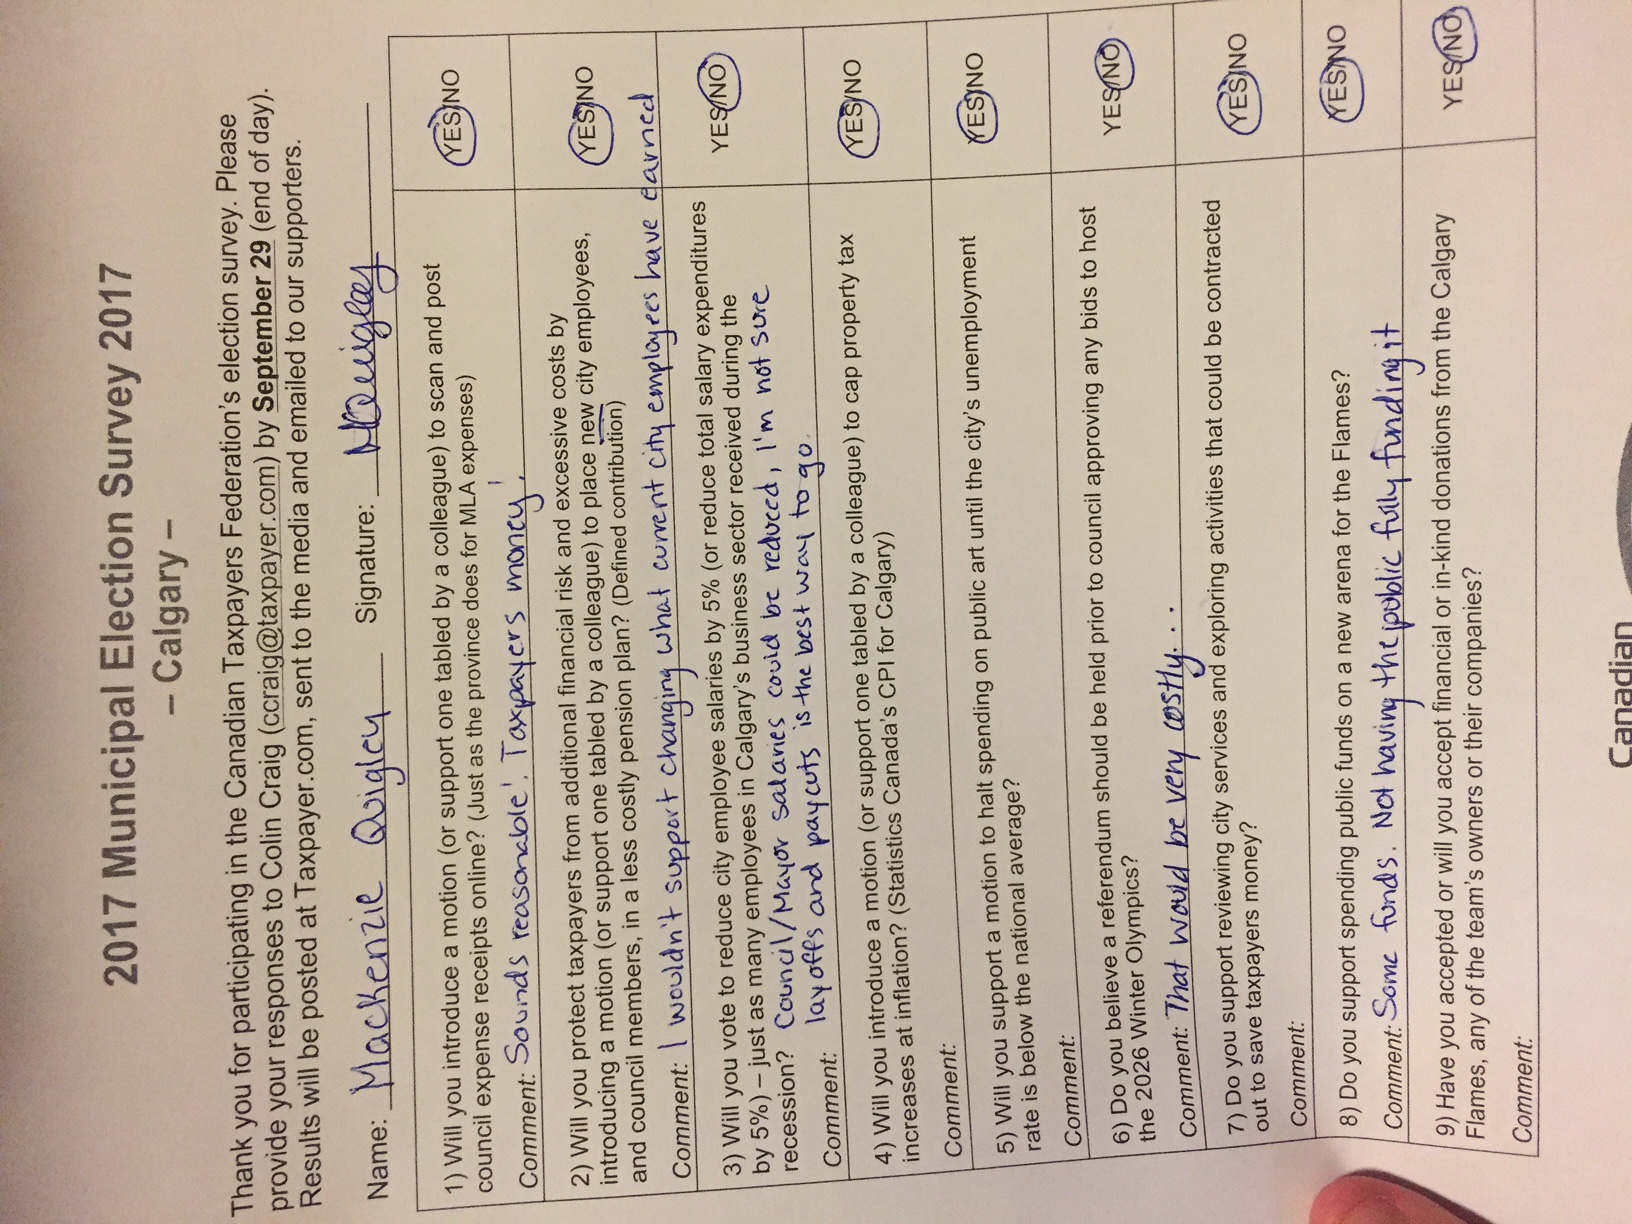 2017 Municipal Election Survey 2017
– Calgary –
Thank you for participating in the Canadian Taxpayers Federation's election survey. Please
provide your responses to Colin Craig (ccraig@taxpayer.com) by September 29 (end of day).
Results will be posted at Taxpayer.com, sent to the media and emailed to our supporters.
Name: Mackenzie Quigley Signature: MQuigley
1) Will you introduce a motion (or support one tabled by a colleague) to scan and post
council expense receipts online? (Just as the province does for MLA expenses)
YES/NO
Comment: Sounds reasonable! Taxpayers money!
2) Will you protect taxpayers from additional financial risk and excessive costs by
introducing a motion (or support one tabled by a colleague) to place new city employees,
and council members, in a less costly pension plan? (Defined contribution)
YES/NO
Comment: I wouldn't support changing what current city employees have earned
3) Will you vote to reduce city employee salaries by 5% (or reduce total salary expenditures
by 5%) – just as many employees in Calgary's business sector received during the
recession? Council/Mayor salaries could be reduced, I'm not sure
YES/NO
Comment: layoffs and paycuts is the best way to go.
4) Will you introduce a motion (or support one tabled by a colleague) to cap property tax
increases at inflation? (Statistics Canada's CPI for Calgary)
YES/NO
Comment:
5) Will you support a motion to halt spending on public art until the city's unemployment
rate is below the national average?
YES/NO
Comment:
6) Do you believe a referendum should be held prior to council approving any bids to host
the 2026 Winter Olympics?
YES/NO
Comment: That would be very costly...
7) Do you support reviewing city services and exploring activities that could be contracted
out to save taxpayers money?
YES/NO
Comment:
8) Do you support spending public funds on a new arena for the Flames?
YES/NO
Comment: Some funds. Not having the public fully funding it
9) Have you accepted or will you accept financial or in-kind donations from the Calgary
Flames, any of the team's owners or their companies?
YES/NO
Comment:
Canadian